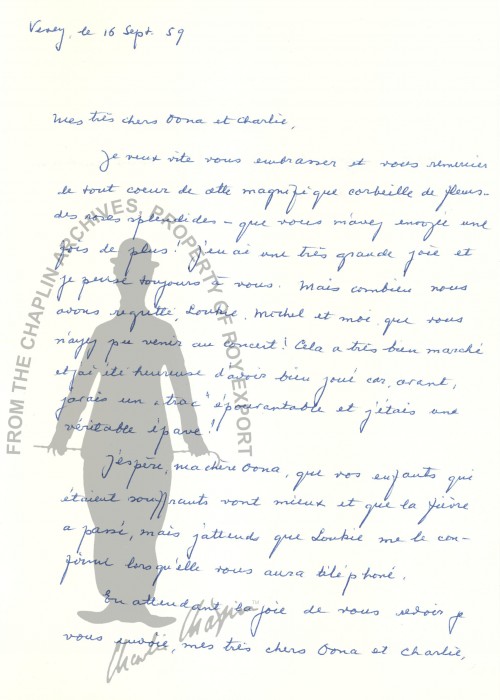 Vevey, le 16 Sept. 59
Mes très chers Oona et Charlie,
Je veux vite vous embrasser et vous remercier
de tout coeur de cette magnifique corbeille de fleurs -
des roses splendides - que vous m'avez envoyée une
fois de plus! J'en ai une très grande joie et
je pense toujours à vous. Mais combien nous
avons regretté, Loukie, Michel et moi, que vous
n'ayez pu venir au concert! Cela a très bien marché
et j'ai été heureuse d'avoir bien joué car, avant,
j'avais un "trac" épouvantable et j'étais une
véritable épave!
J'espère, ma chère Oona, que vos enfants qui
étaient souffrants vont mieux et que la fièvre
a passé, mais j'attends que Loukie me le con-
firme lorsqu'elle vous aura téléphoné.
En attendant la joie de vous revoir je
vous envoie, mes très chers Oona et Charlie,
FROM THE CHAPLIN ARCHIVES, PROPERTY OF ROY EXPORT
Charlie Chaplin™